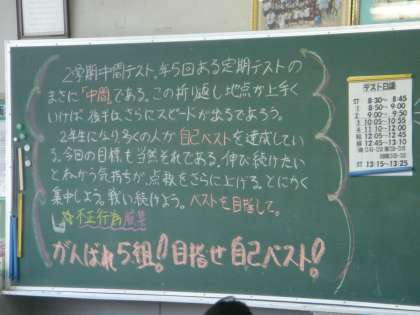 2学期中間テスト。年5回ある定期テストの
まさに「中間」である。この折り返し地点が上手く
いけば、後半はさらにスピードが出るであろう。
2年生になり多くの人が自己ベストを達成してい
る。今回の目標も当然それである。伸び続けたい
とねがう気持ちが、点数をさらに上げる。とにかく
集中しよう。戦い続けよう。ベストを目指して。
☆不正行為厳禁
がんばれ5組!目指せ自己ベスト!
テスト日課
ST 8:30～8:45